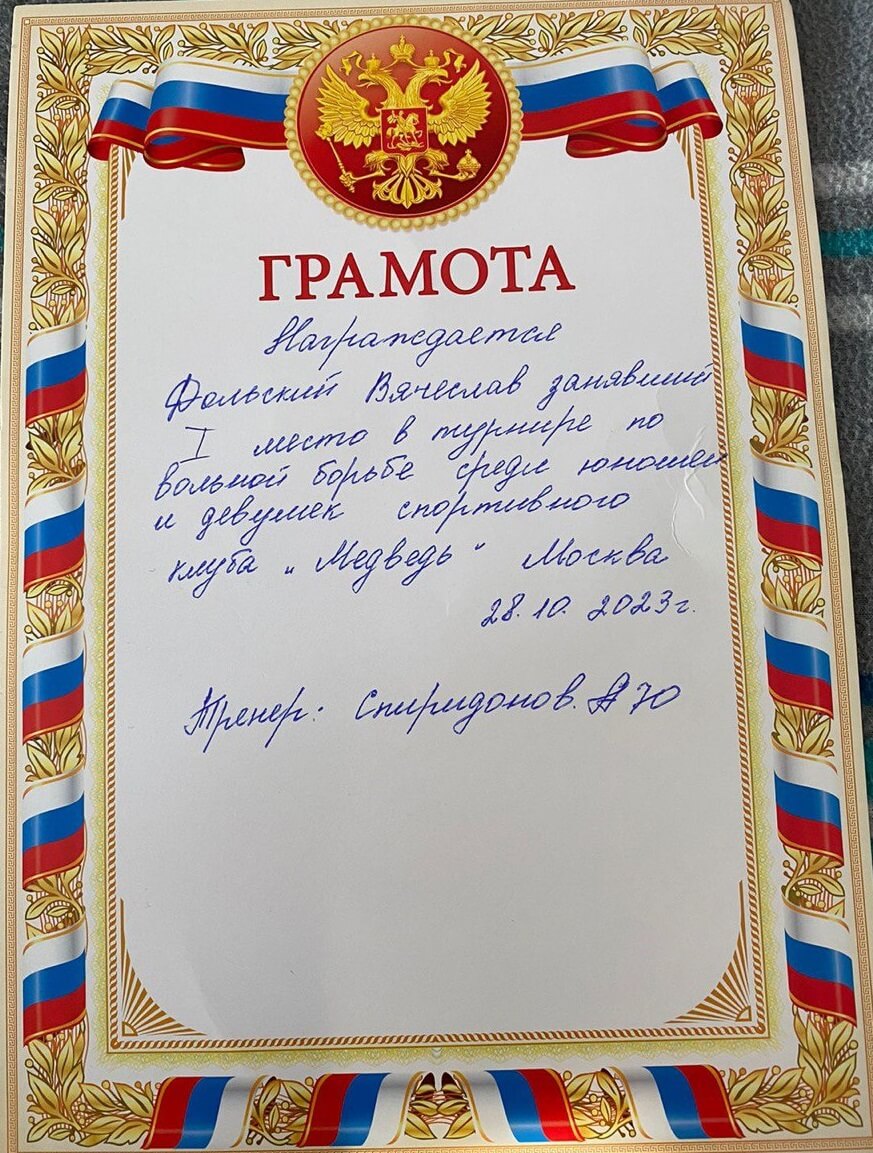 ГРАМОТА
Награждается
Фольский Вячеслав занявший
I место в турнире по
вольной борьбе среди юношей
и девушек спортивного
клуба „Медведь" Москва
28.10. 2023г.
Тренер: Спиридонов. А Ю